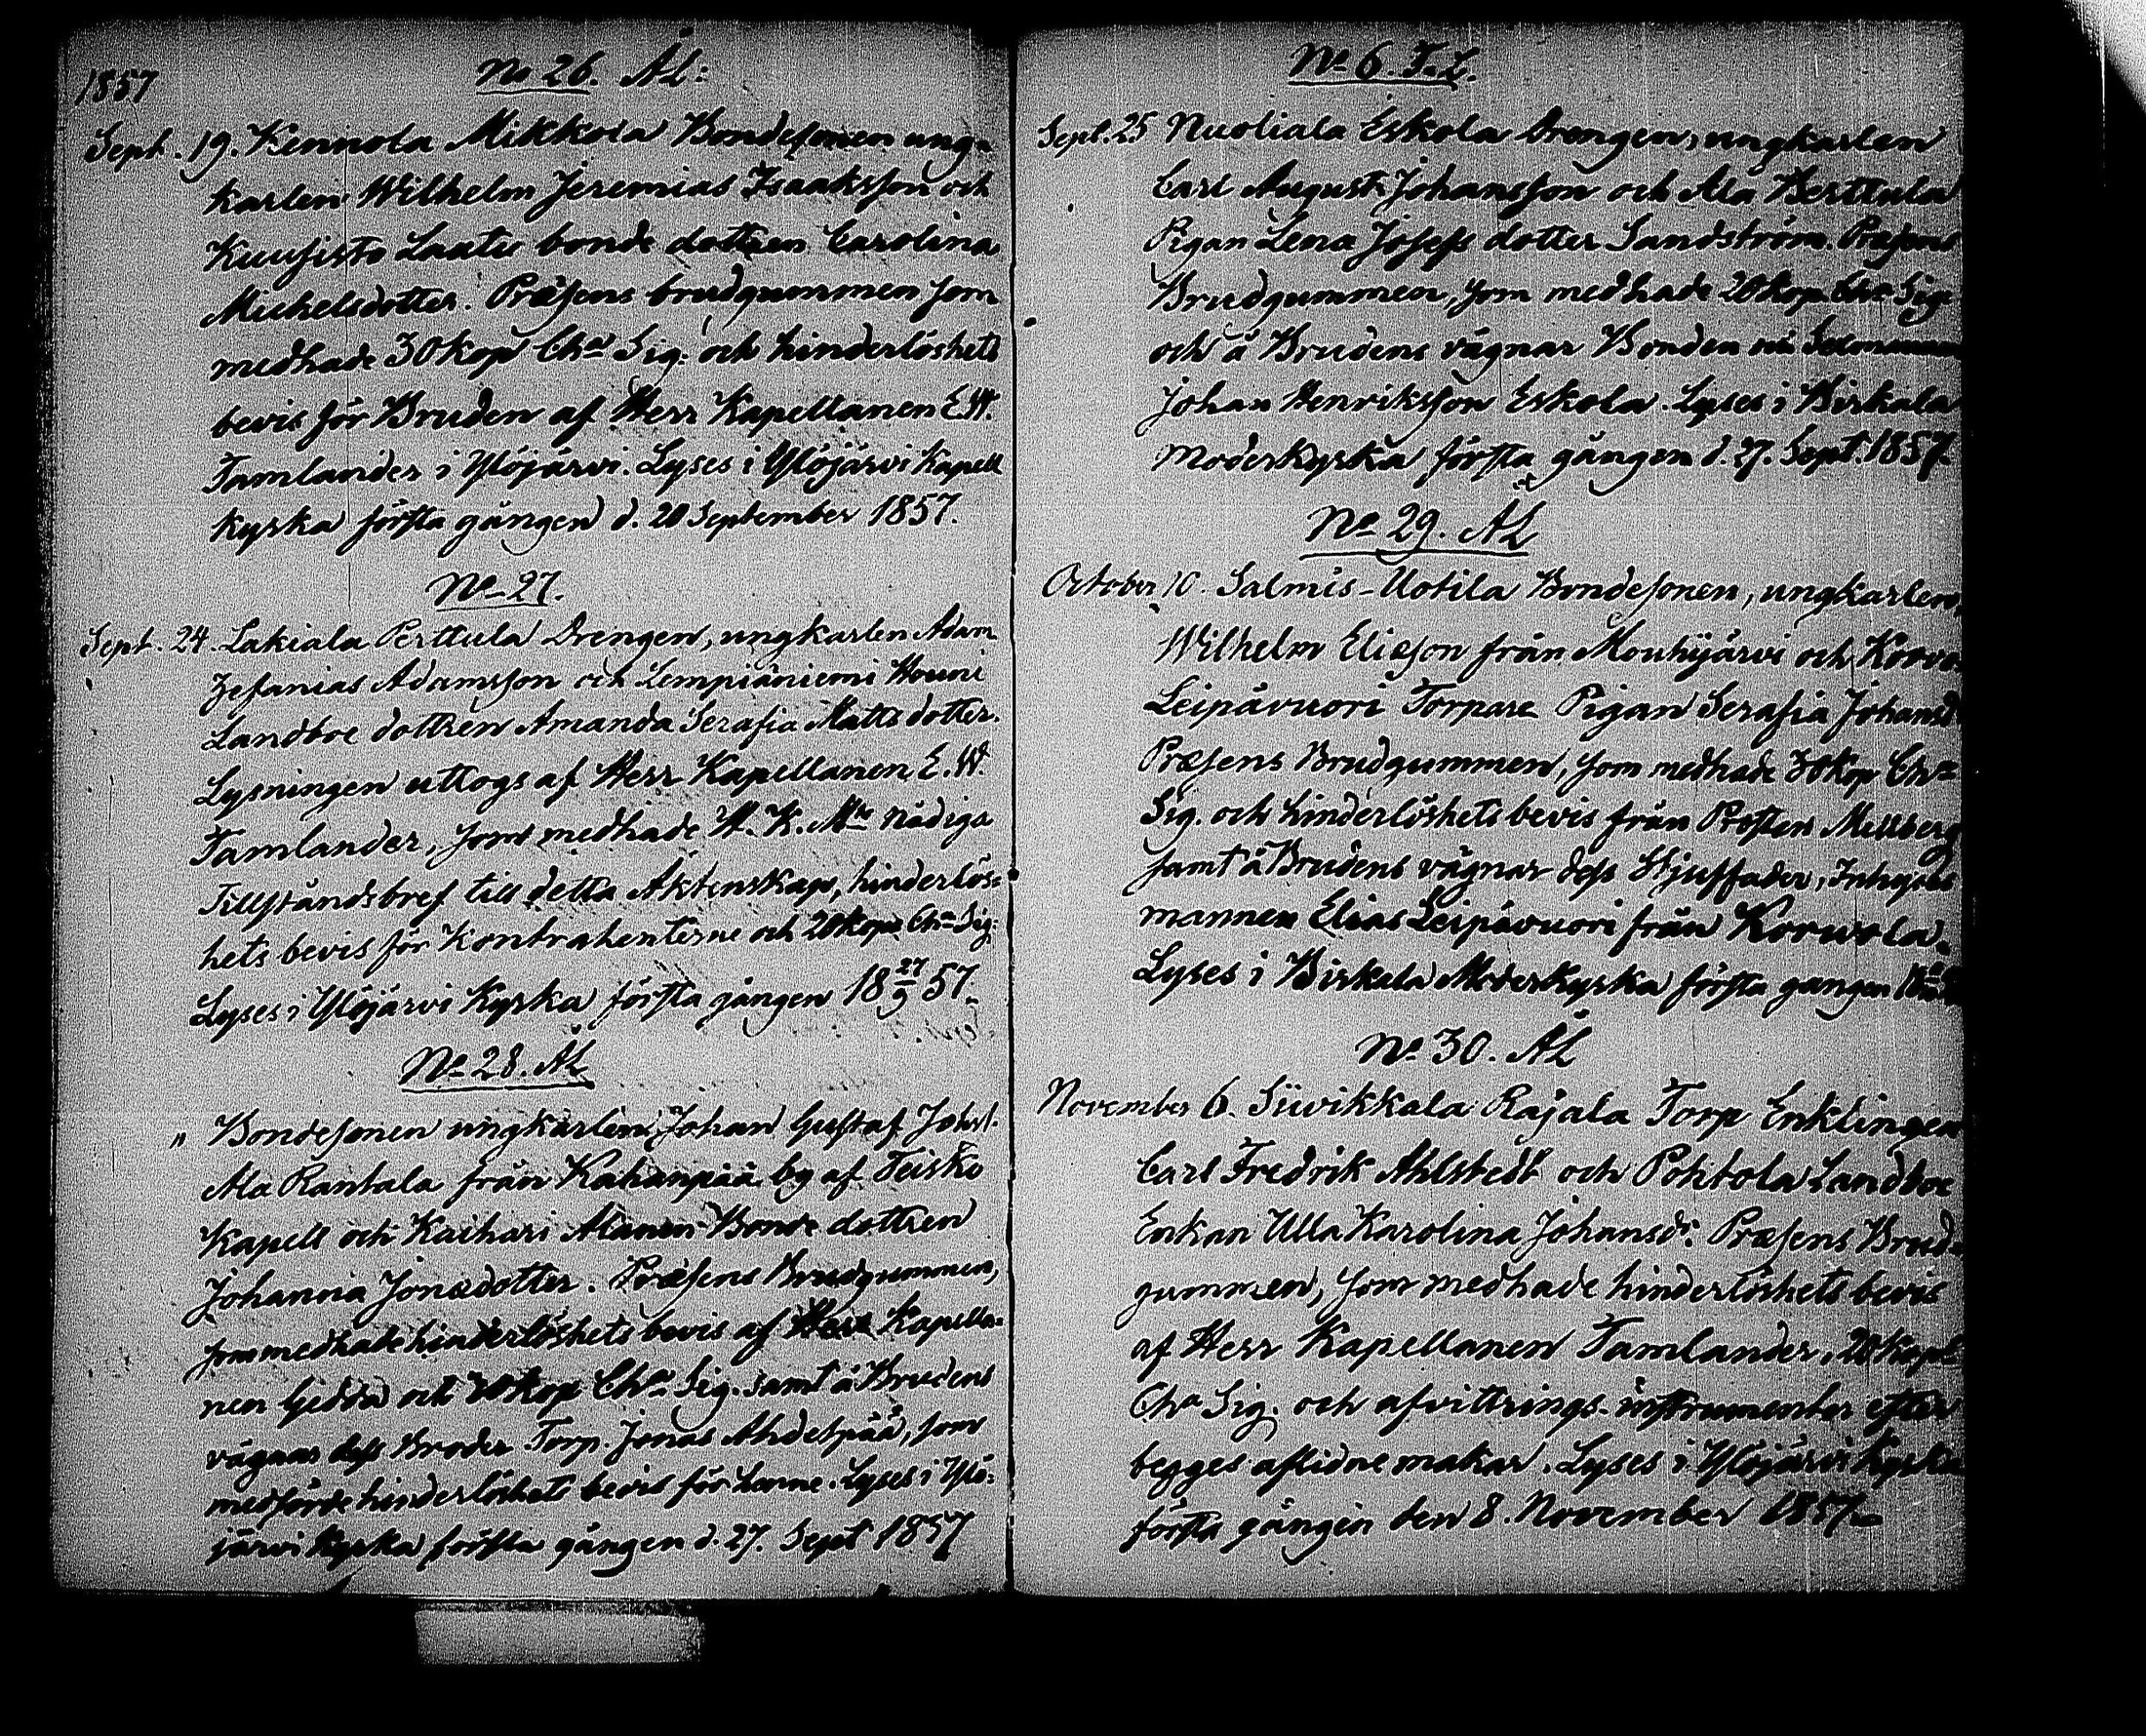 1857
No 26. ÅL:
Sept. 19. Kennola Mikkola Bondesonen ung-
karlen Wilhelm Jeremias Isaaksson och
Kuusisto Laatu bonde dottren Carolina
Michelsdotter. Præsens brudgummen som
medhade 30 kop Cha Sig. och hinderlöshets
bevis för Bruden af Herr Kapellanen E.W.
Tamlander i Ylöjärvi. Lyses i Ylöjärvi Kapell
kyrka första gången d. 20 September 1857.
No 27.
Sept. 24. Lakiala Perttula Drengen, ungkarlen Adam
Zefanias Adamsson och Lempiäniemi Houni
Landboe dottren Amanda Serafia Matts dotter.
Lysningen uttogs af Herr Kapellanen E.W.
Tamlander, som medhade H.K.Mts nådiga
Tillståndsbref till detta Äktenskap, hinderlös-
hets bevis för Kontrahenterne och 20 kop Cha Sig:
Lyses i Ylöjärvi Kyrka första gången 18 27/9 57.
No 28. ÅL
" Bondesonen ungkarlen Johan Gustaf Johs.
Ala Rantala från Kahanpää by af Teisko
Kapell och Kaihari Alanen Bonde dottren
Johanna Jonædotter. Præsens Brudgummen,
som medhade hinderlöshets bevis af Herr Kapella-
nen Gedda och kop Cha Sig. samt å Brudens
vägnar dess Broder Torp. Jonas Ahdespää, som
medförde hinderlöshets bevis för henne. Lyses i Ylö-
järvi Kyrka första gången d. 27. Sept 1857
No 6. F.L.
Sept. 25 Nuoliala Eskola Drengen, ungkarlen
Carl August Johansson och Ala Perttula
Pigan Lena Josefs dotter Sandström. Præsens
Brudgummen, som medhade 20 kop Cha Sig
och å Brudens vägnar Bonden
Johan Henriksson Eskola. Lyses i Birkala
Moderkyrka första gången d. 27. Sept. 1857.
No 29. ÅL
October 10. Salmis-Uotila Bondesonen, ungkarlen,
Wilhelm Eliæson från Mouhijärvi och Korvo
Leipävuori Torpare Pigan Serafia Johansd
Præsens Brudgummen, som medhade 30 kop Cha
Sig. och hinderlöshets bevis från Prosten Mellberg
samt å Brudens vägnar dess Stjuffader, Inhyses
mannen Elias Leipävuori från Korwola.
Lyses i Birkala Moderkyrka första gången
No 30. ÅL
November 6. Siivikkala Rajala Torp Enklingen
Carl Fredrik Ahlstedt och Pohtola Landboe
Enkan Ulla Karolina Johansdr. Præsens Brud-
gummen, som medhade hinderlöshets bevis
af Herr Kapellanen Tamlander, 20 kop
Cha Sig. och afvittrings-instrumenter efter
begges aflidne makar. Lyses i Ylöjärvi Kyrka
första gången den 8. November 1857.